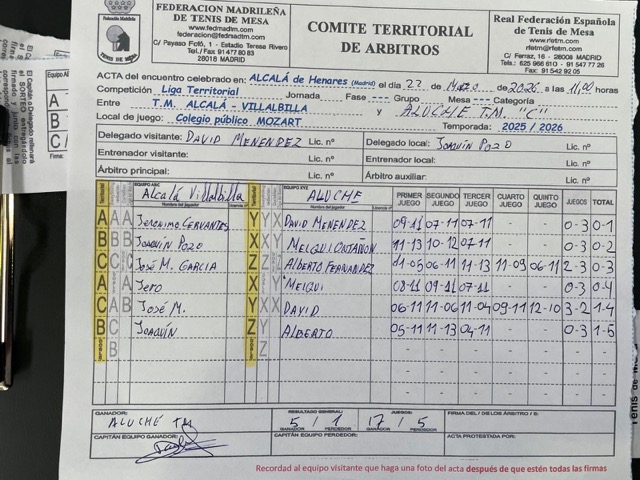 FEDERACIÓN MADRILEÑA
DE TENIS DE MESA
www.fedmadtm.com
federacion@fedmadtm.com
C/ Payaso Fofó, 1 - Estadio Teresa Rivero
Tel./Fax 91 477 80 83
28018 MADRID
COMITE TERRITORIAL
DE ARBITROS
Real Federación Española
de Tenis de Mesa
www.rfetm.com
rfetm@rfetm.com
C/ Ferraz, 16 - 28008 MADRID
Fax: 91 542 92 05
ACTA del encuentro celebrado en: ALCALÁ de Henares (Madrid) el día 22 de MARZO de 2026 a las 11,00 horas
Competición Liga Territorial Jornada Fase --- Grupo Mesa --- Categoría
Entre T.M. ALCALÁ - VILLALBILLA y ALUCHE T.M. "C"
Local de juego: Colegio público MOZART Temporada: 2025 / 2026
Delegado visitante: DAVID MENENDEZ Lic. nº Delegado local: JOAQUÍN POZO Lic. nº
Entrenador visitante: Lic. nº Entrenador local: Lic. nº
Árbitro principal: Lic. nº Árbitro auxiliar: Lic. nº
EQUIPO ABC Alcalá Villalbilla EQUIPO XYZ ALUCHE PRIMER JUEGO SEGUNDO JUEGO TERCER JUEGO CUARTO JUEGO QUINTO JUEGO JUEGOS TOTAL
A A A JERONIMO CERVANTES Y Y X DAVID MENENDEZ 09-11 07-11 07-11 - - 0-3 0-1
B B B JOAQUÍN POZO X X Y MELQUI ONTAÑON 11-13 10-12 07-11 - - 0-3 0-2
C C C JOSÉ M. GARCIA Z Z ALBERTO FERNANDEZ 11-05 06-11 11-13 11-09 06-11 2-3 0-3
A C A JERO X Y MELQUI 08-11 09-11 07-11 - - 0-3 0-4
C A B JOSÉ M. Y X X DAVID 06-11 11-06 11-04 09-11 12-10 3-2 1-4
B C JOAQUÍN Z Y ALBERTO 05-11 11-13 04-11 - - 0-3 1-5
B Z
GANADOR: ALUCHE TM
RESULTADO GENERAL: 5 / 1
GANADOR PERDEDOR
JUEGOS: 17 / 5
GANADOR PERDEDOR
FIRMA DEL / DE LOS ÁRBITRO / S:
CAPITÁN EQUIPO GANADOR:
CAPITÁN EQUIPO PERDEDOR:
ACTA PROTESTADA POR:
Recordad al equipo visitante que haga una foto del acta después de que estén todas las firmas